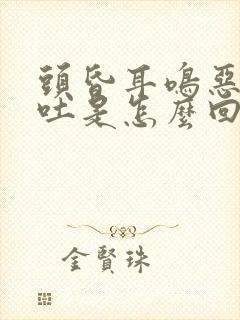 頭昏耳鳴惡
吐是怎麼回
金賢珠